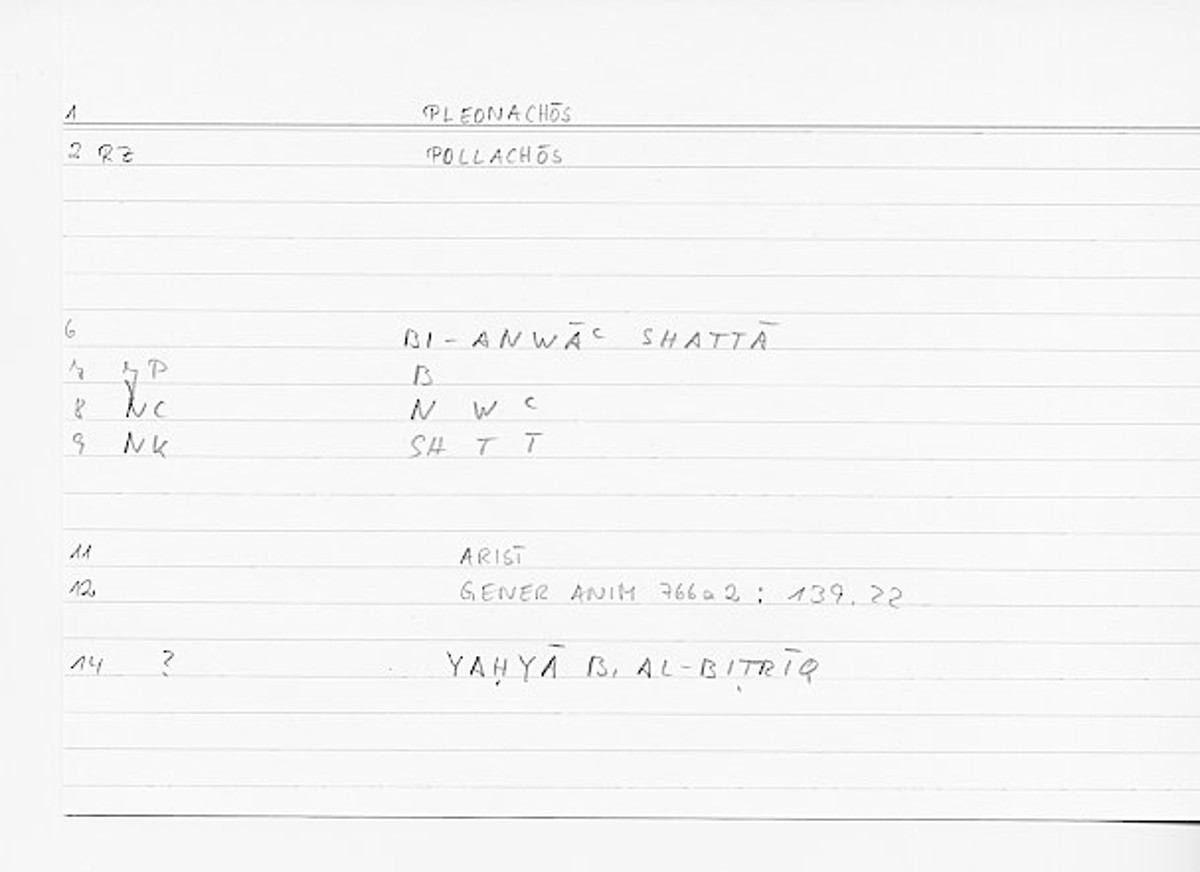 1 PLEONACHŌS
2 RZ POLLACHŌS
6 BI-ANWĀC SHATTĀ
7 B
8 NC N W C
9 NK SH T T̄
11 ARIST
12 GENER ANIM 766a2 : 139.22
14 ? YAḤYĀ B. AL-BIṬRĪQ